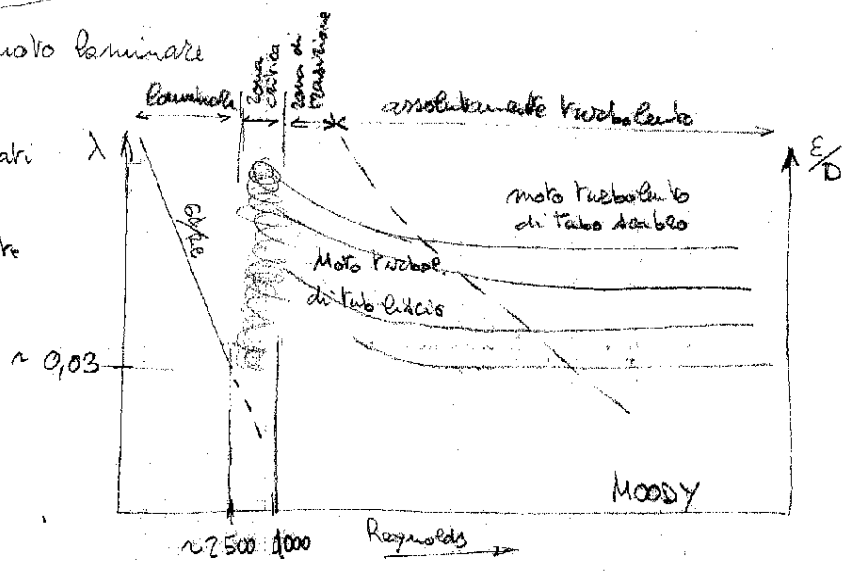 moto laminare
laminare
zona critica
zona di transizione
assolutamente turbolento
λ
ε/D
64/Re
moto turbolento
di tubo scabro
Moto turbol.
di tubo liscio
~ 0,03
MOODY
~2500
Reynolds